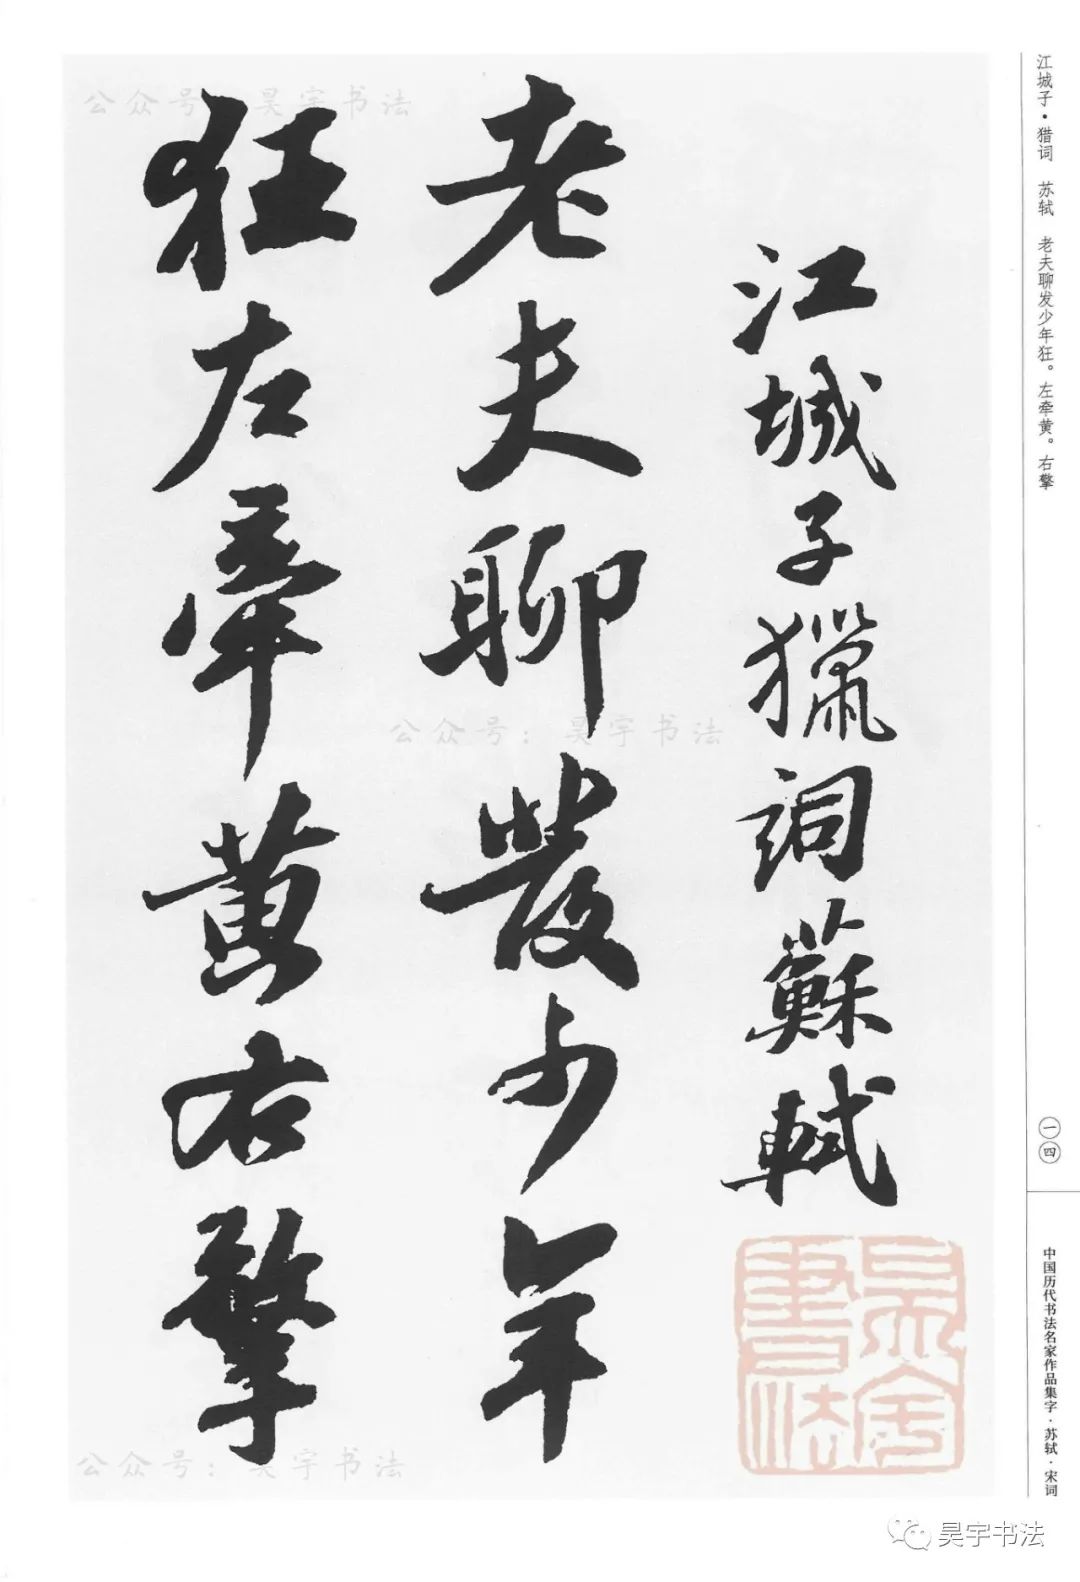 江城子·猎词　苏轼　老夫聊发少年狂。左牵黄。右擎
一四
中国历代书法名家作品集字·苏轼·宋词
江城子獵詞蘇軾
老夫聊發少年
狂左牽黃右擎
公众号：昊宇书法
公众号：昊宇书法
公众号：昊宇书法
昊宇書法
昊宇书法